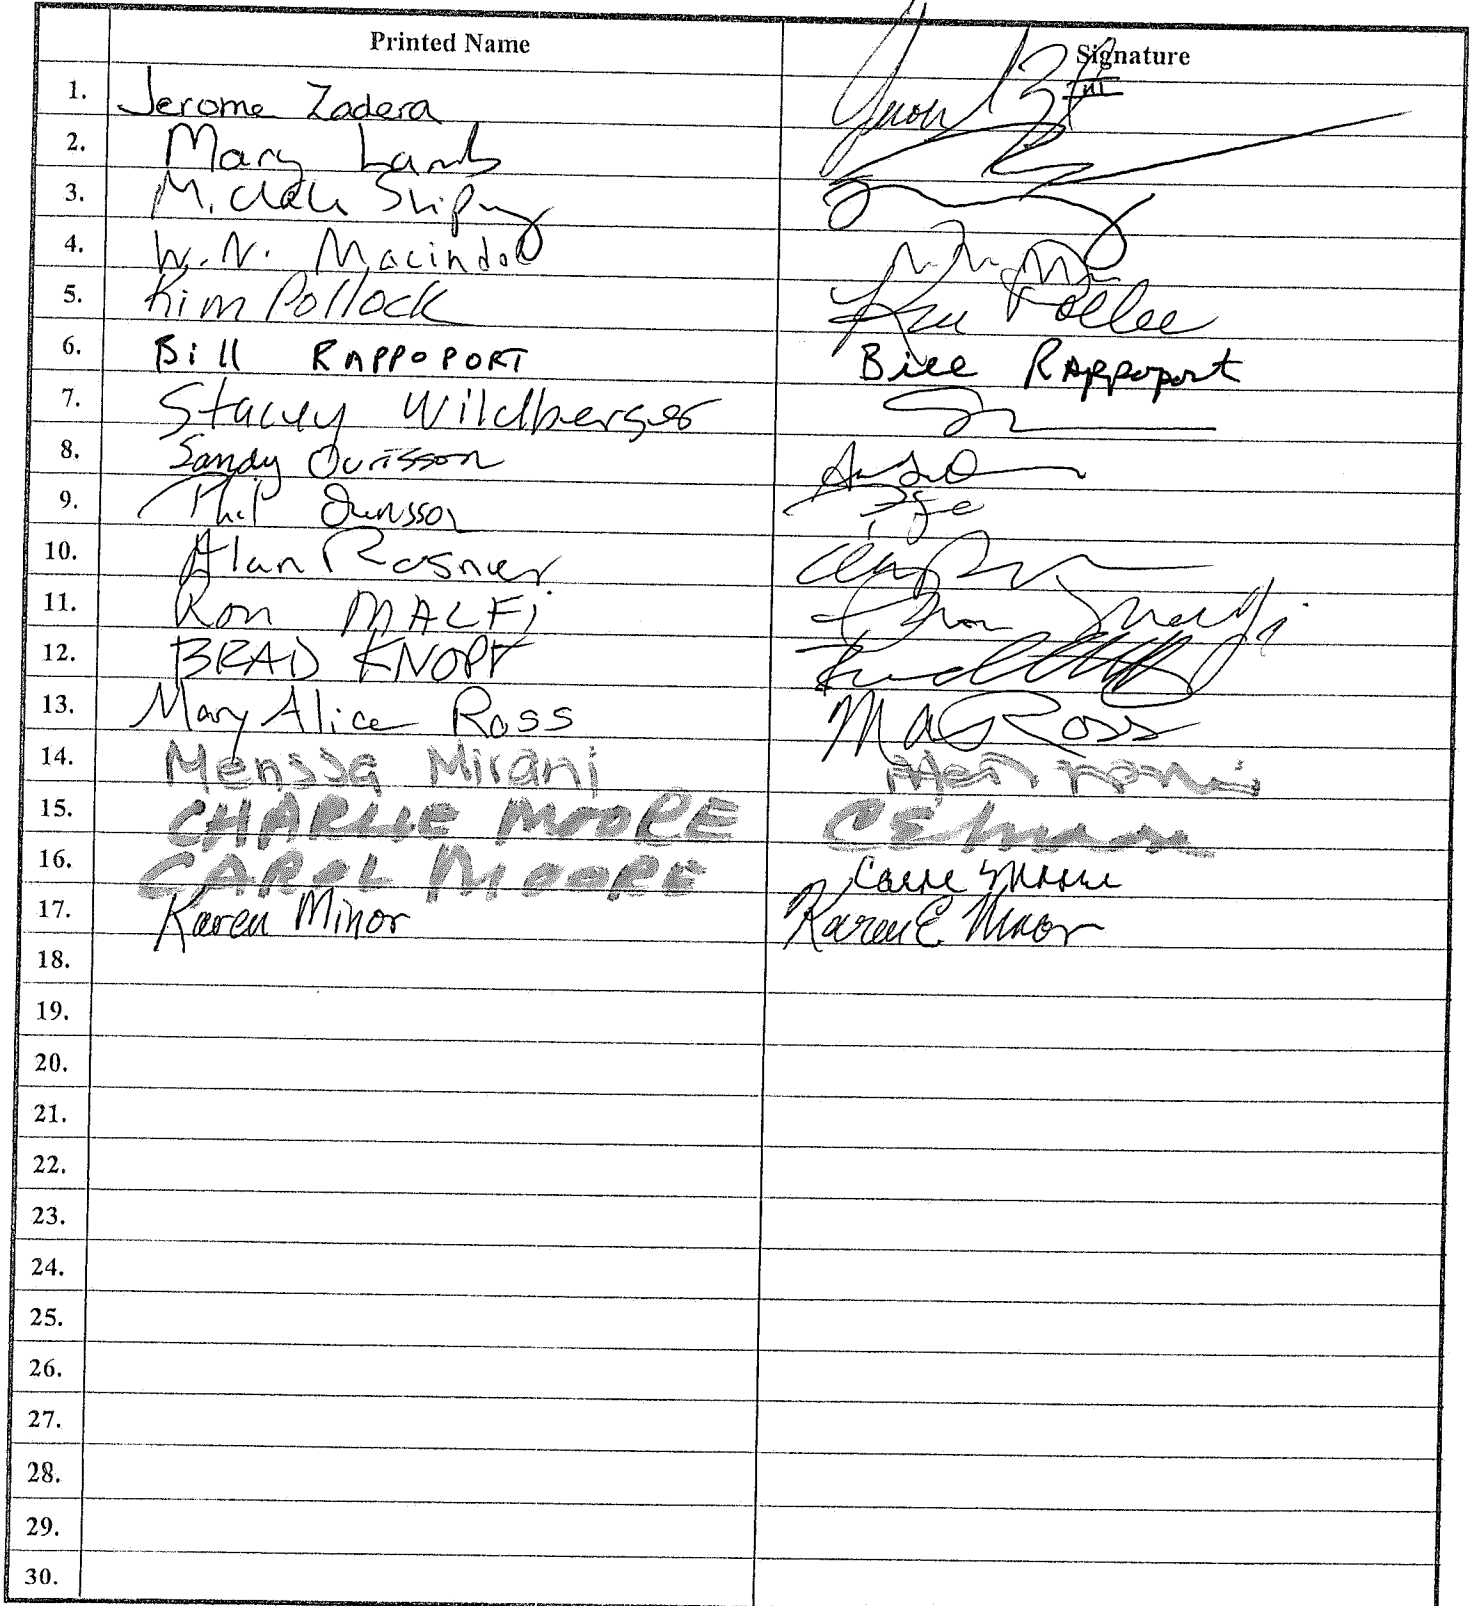 Printed Name Signature
1. Jerome Zadera III
2. Mary Lamb
3. Michele
4. W.N. Macindoe
5. Kim Pollock Kim
6. Bill RAPPOPORT Bill RAPPOPORT
7. Stacey Wildberger
8. Sandy Ourisson
9. Phil Ourisson
10. Alan Rosner
11. Ron MALFi Ron Malfi
12. BRAD KNOPF
13. Mary Alice Ross MA Ross
14. Mirani
15. CHARLIE MOORE CE Moore
16. CAROL MOORE Carol Moore
17. Karen Minor Karen E Minor
18.
19.
20.
21.
22.
23.
24.
25.
26.
27.
28.
29.
30.